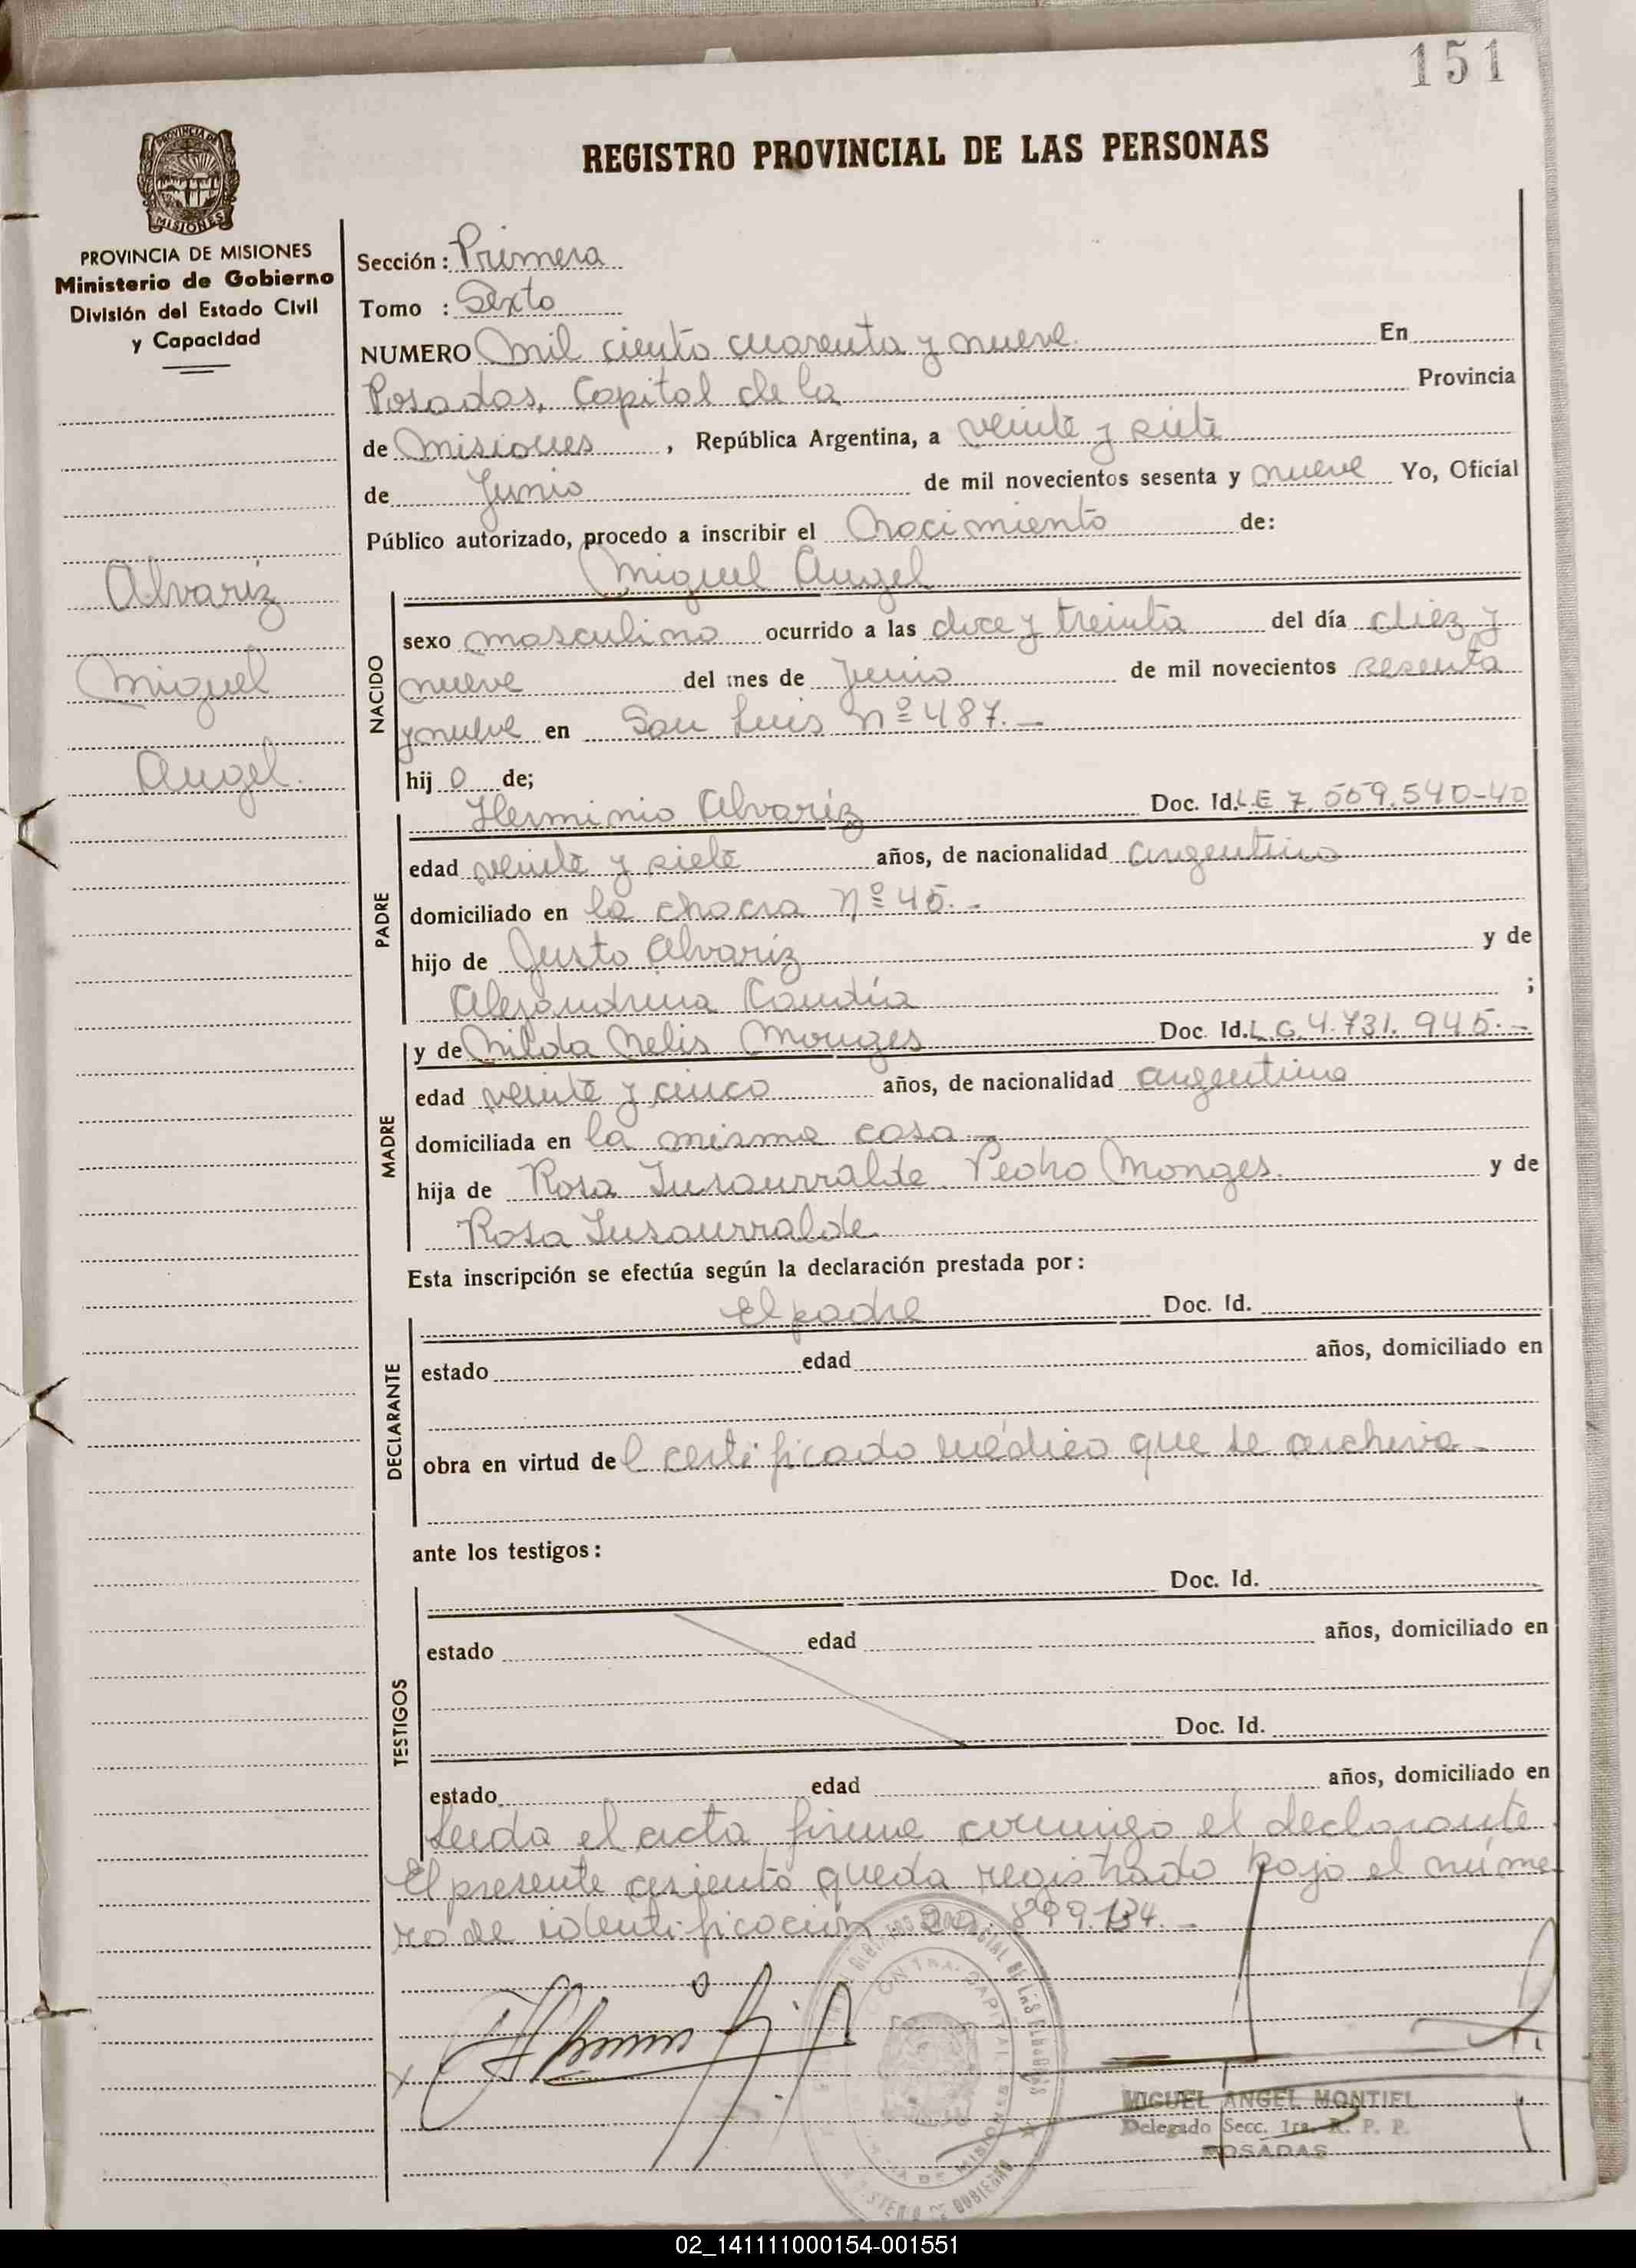 151
PROVINCIA DE MISIONES
PROVINCIA DE MISIONES
Ministerio de Gobierno
División del Estado Civil
y Capacidad
Alvariz
Miguel
Angel.
REGISTRO PROVINCIAL DE LAS PERSONAS
Sección: Primera
Tomo : Sexto
NUMERO Mil ciento cuarenta y nueve. En
Posadas, Capital de la Provincia
de Misiones, República Argentina, a veinte y siete
de Junio de mil novecientos sesenta y nueve Yo, Oficial
Público autorizado, procedo a inscribir el Nacimiento de:
Miguel Angel
NACIDO
sexo masculino ocurrido a las doce y treinta del día diez y
nueve del mes de Junio de mil novecientos sesenta
y nueve en San Luis Nº 487.—
hij o de;
PADRE
Herminio Alvariz Doc. Id. L E 7.559.540-40
edad veinte y siete años, de nacionalidad argentino
domiciliado en la chacra Nº 45.-
hijo de Justo Alvariz y de
Alejandrina Candía ;
MADRE
y de Nilda Nelis Monges Doc. Id. L C. 4.731.945.-
edad veinte y cinco años, de nacionalidad argentina
domiciliada en la misma casa.-
hija de Rosa Insaurralde Pedro Monges. y de
Rosa Insaurralde.
Esta inscripción se efectúa según la declaración prestada por:
DECLARANTE
el padre Doc. Id.
estado edad años, domiciliado en
obra en virtud del certificado médico que se archiva.-
ante los testigos:
TESTIGOS
Doc. Id.
estado edad años, domiciliado en
Doc. Id.
estado edad años, domiciliado en
Leida el acta firma conmigo el declarante.
El presente asiento queda registrado bajo el núme-
ro de identificación 20.899.134.-
MIGUEL ANGEL MONTIEL
Delegado Secc. 1ra. R. P. P.
POSADAS
02_141111000154-001551